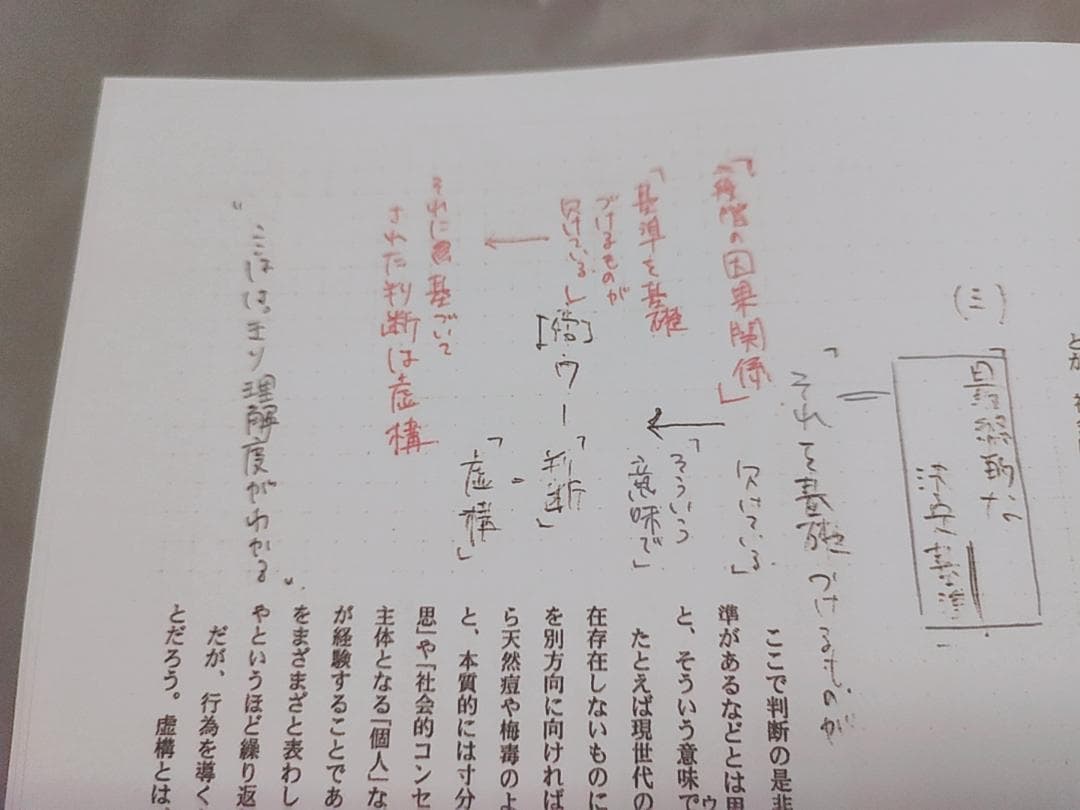 (三)
「最終的な
決定基準
＝
「それを基礎づけるものが
欠けている」
「そういう
意味で」
「判断」
＝
「虚構」
の因果関係」
「基準を基礎
づけるものが
欠けている」
ウー
それに基づいて
された判断は虚構
理解度がわかる"
ここで判断の是非
準があるなどとは思
と、そういう意味で
たとえば現世代の
ウ
在存在しないものに
を別方向に向ければ
ら天然痘や梅毒のよ
と、本質的には寸分
思」や「社会的コンセ
主体となる「個人」な
が経験することであ
をまざまざと表わし
やというほど繰り返
だが、行為を導く
とだろう。虚構とは